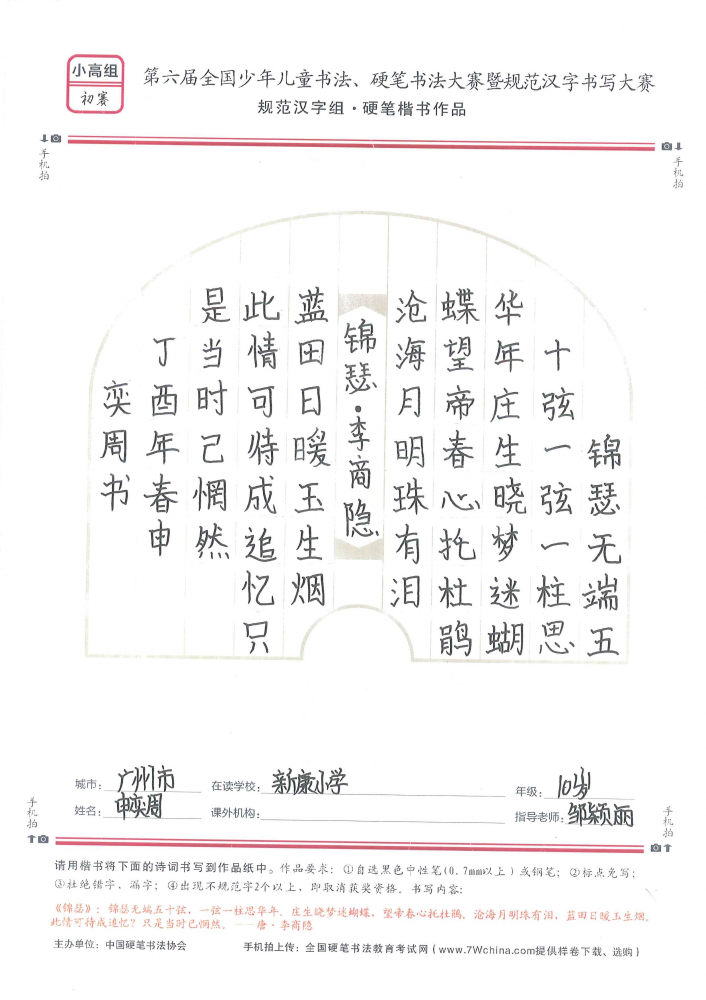 小高组
初赛
第六届全国少年儿童书法、硬笔书法大赛暨规范汉字书写大赛
规范汉字组·硬笔楷书作品
手机拍
手机拍
锦瑟无端五
十弦一弦一柱思
华年庄生晓梦迷蝴
蝶望帝春心托杜鹃
沧海月明珠有泪
锦瑟·李商隐
蓝田日暖玉生烟
此情可待成追忆只
是当时己惘然
丁酉年春申
奕周书
城市：广州市 在读学校：新康小学 年级：10岁
姓名：申奕周 课外机构： 指导老师：邹颖丽
手机拍
手机拍
请用楷书将下面的诗词书写到作品纸中。作品要求：①自选黑色中性笔(0.7mm以上）或钢笔；②标点免写；
③杜绝错字、漏字；④出现不规范字2个以上，即取消获奖资格。书写内容：
《锦瑟》：锦瑟无端五十弦，一弦一柱思华年。庄生晓梦迷蝴蝶，望帝春心托杜鹃。沧海月明珠有泪，蓝田日暖玉生烟。
此情可待成追忆？只是当时已惘然。——唐·李商隐
主办单位：中国硬笔书法协会 手机拍上传：全国硬笔书法教育考试网（www.7Wchina.com提供样卷下载、选购）